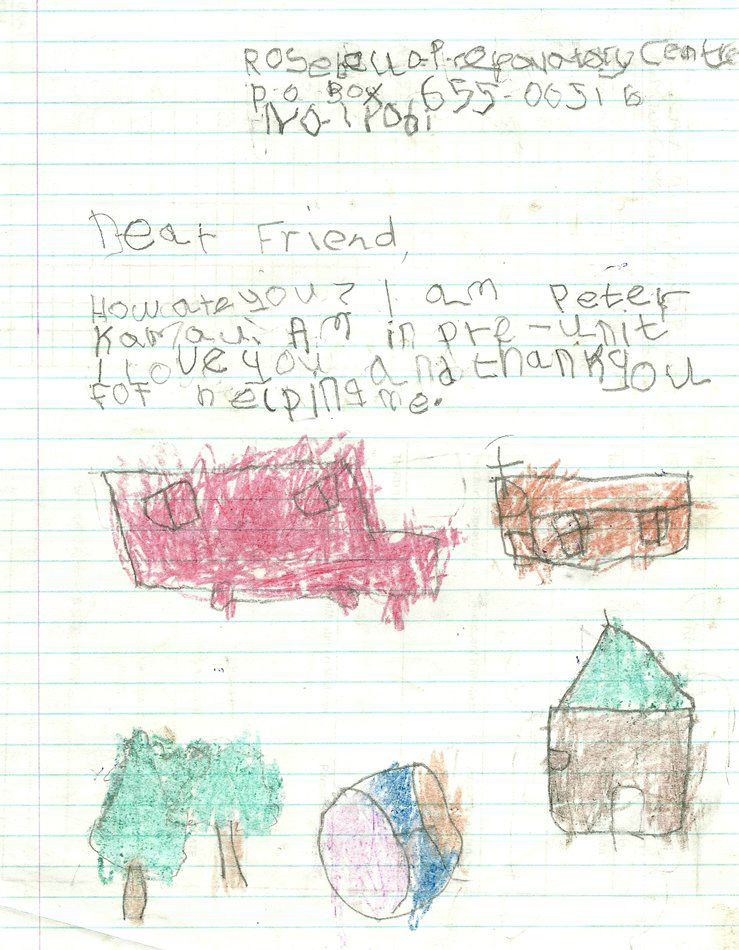 Rosella Preparatory Centre
P.O Box 655-00516
Dear Friend,
How are you? I am Peter
Kamau. Am in pre-unit
I Love you and thank you
for helping me.